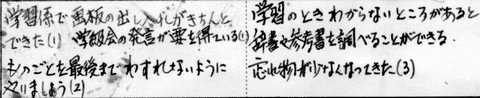 学習係で黒板の出し入れがきちんと
できた(1) 学級会の発言が要を得ている(1)
ものごとを最後までわすれないように
やりましょう(2)
学習のときわからないところがあると
辞書や参考書を調べることができる.
忘れ物が少なくなってきた(3)